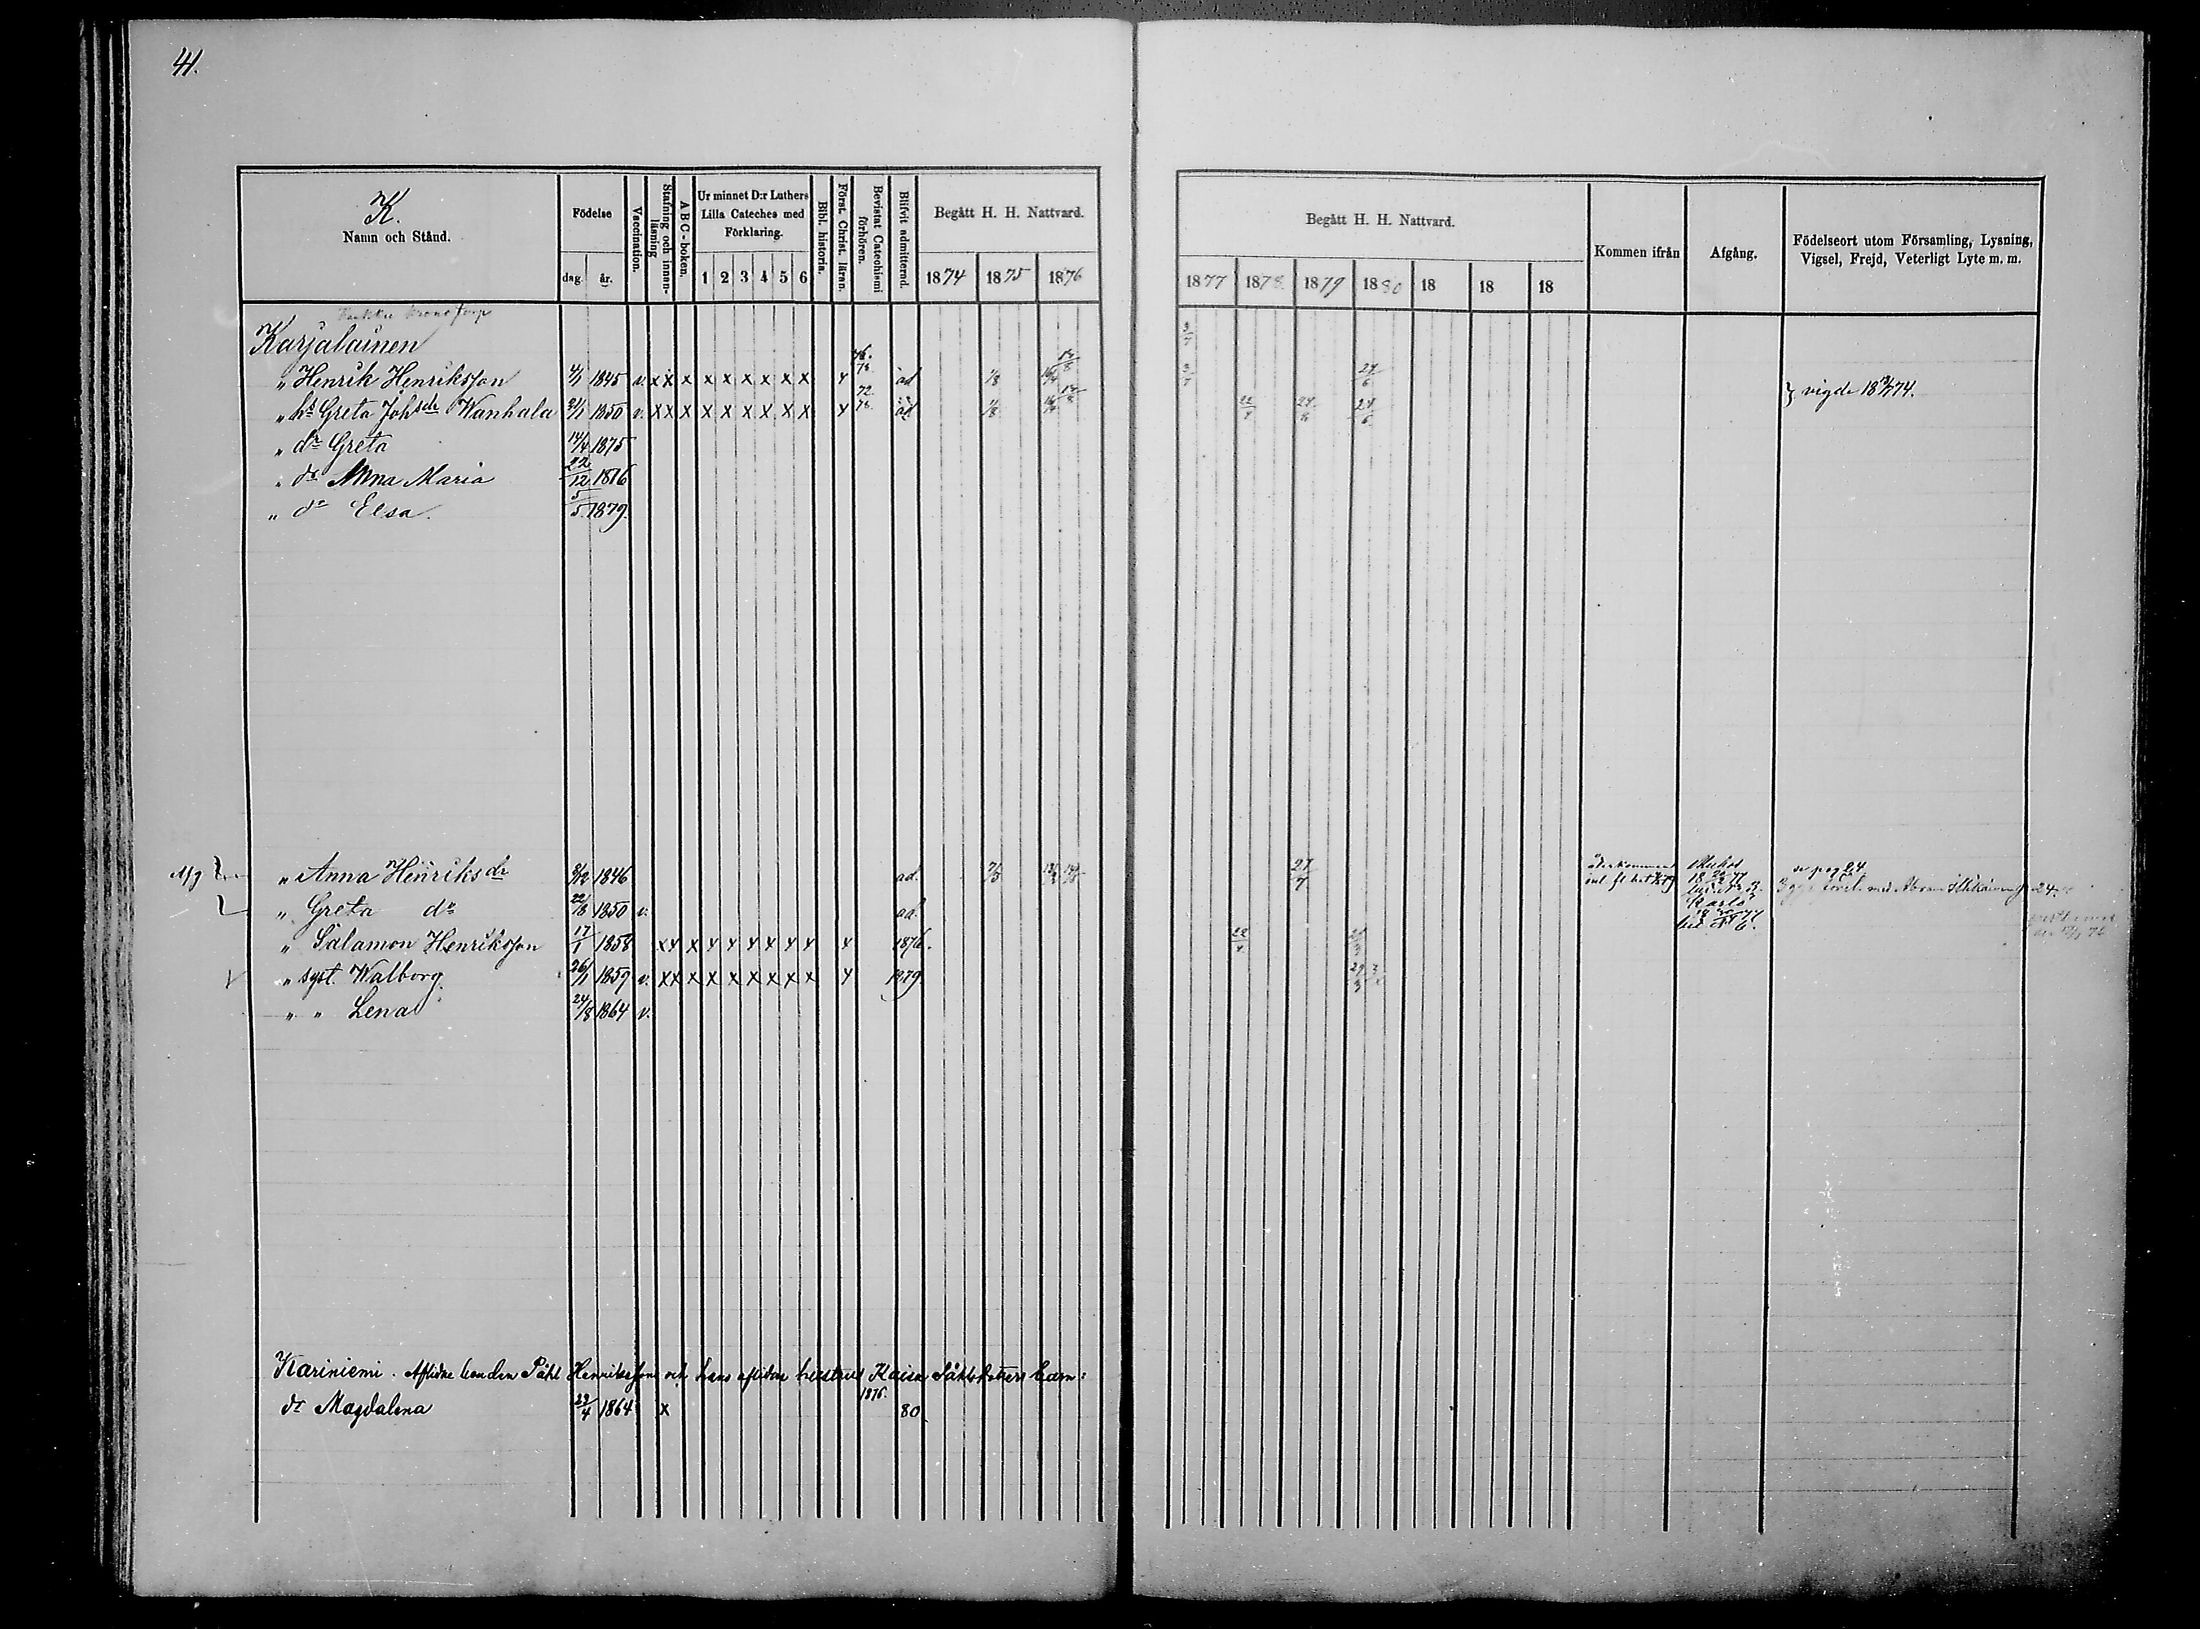 41.
K.
Namn och Stånd.
Födelse
dag. år.
Vaccination.
Stafning och innanläsning
A B C-boken.
Ur minnet D:r Luthers Lilla Cateches med Förklaring.
1 2 3 4 5 6
Bibl. historia.
Först. Christ. läran.
Bevistat Catechismi förhören.
Blifvit admitterad.
Begått H. H. Nattvard.
1874 1875 1876
Begått H. H. Nattvard.
1877 1878 1879 1880 18 18 18
Kommen ifrån
Afgång.
Födelseort utom Församling, Lysning, Vigsel, Frejd, Veterligt Lyte m. m.
Karjalainen 3/7
" Henrik Henriksson 4/1 1845 v. x x x x x x x x x x 76. 78 ad 1/8 3/7 24/6
" h. Greta Johsdr Wanhala 21/1 1850 v. x x x x x x x x x x 72 78. ad 1/8 22/4 24/6 } vigde 1874.
" dr Greta 14/4 1875
" dr Anna Maria 22/12 1876
" dr Elsa. 5/5 1879.
" Anna Henriksdr 8/12 1846 ad. 27/7 se pag 24
" Greta dr 22/8 1850 v. ad. 24
" Salamon Henriksson 17/1 1858 x x x x x x x x x x 1876. 22/4
" syst. Walborg. 26/1 1859 v. x x x x x x x x x x 1879.
" " Lena 24/8 1864 v.
Kariniemi. Aflidne bonden Påhl Henrikssons och hans aflidne hustrus Kaisa barn:
dr Magdalena 23/4 1864 x 1876. 80